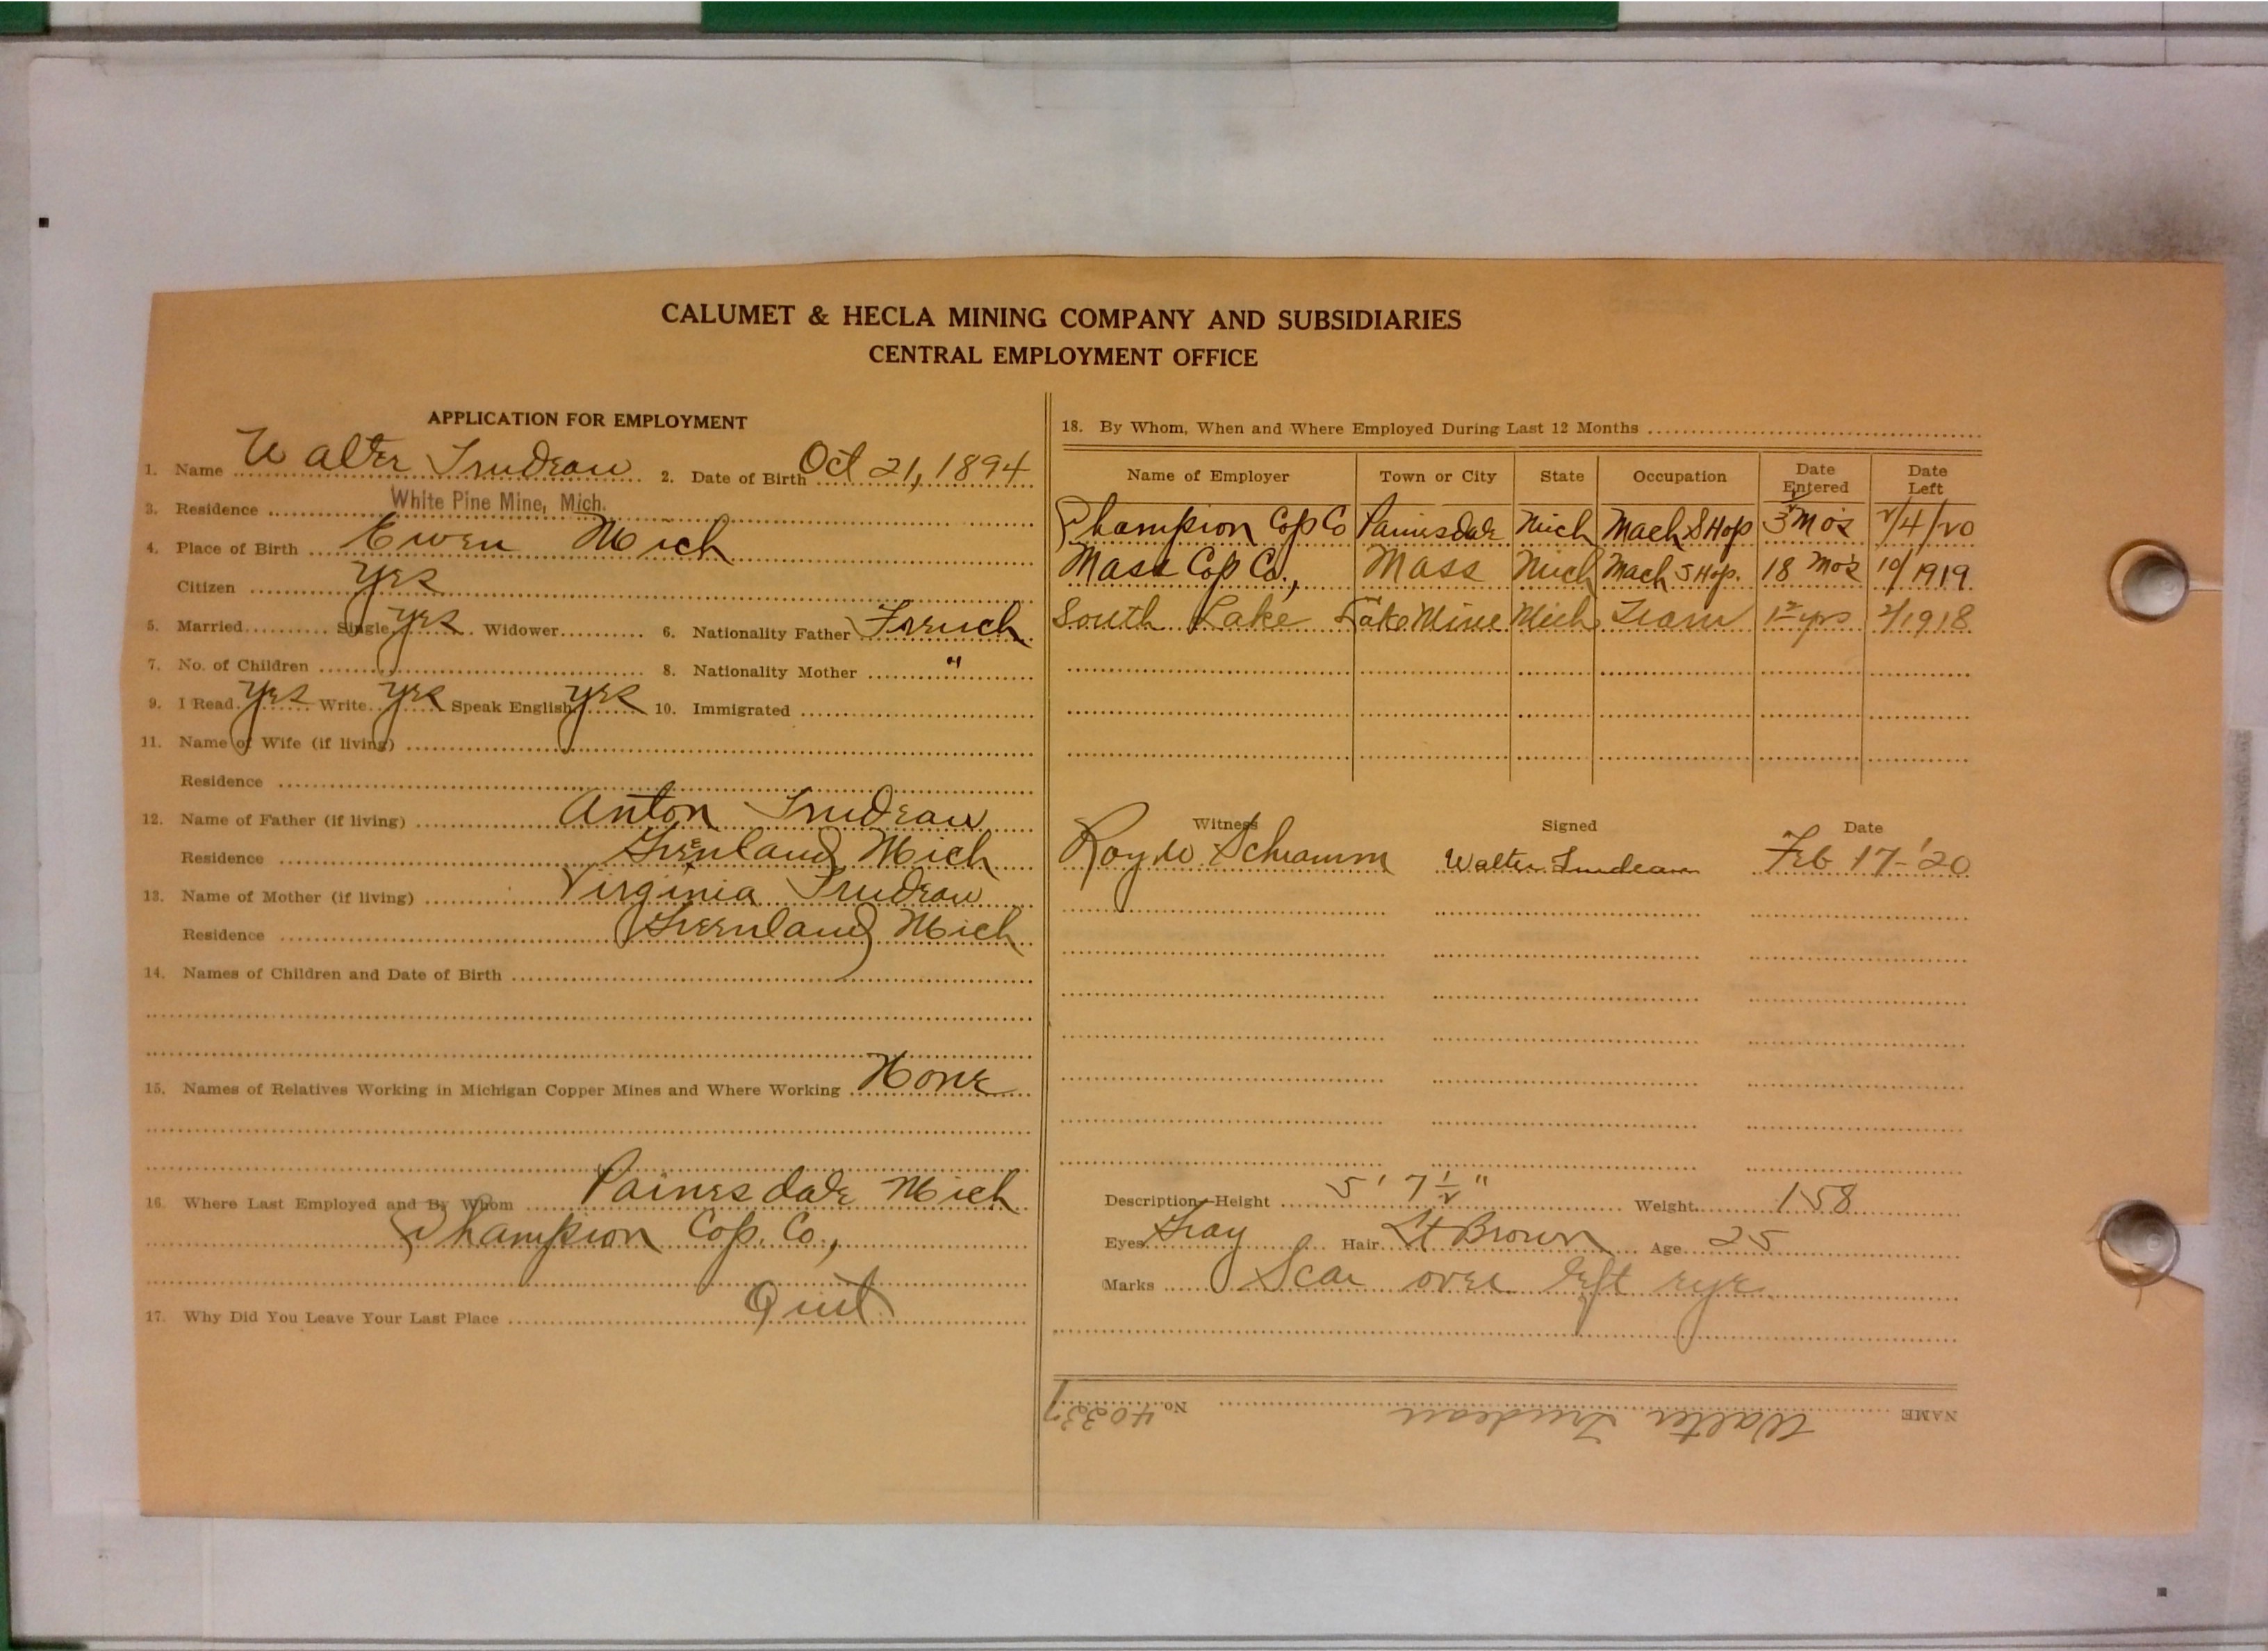 CALUMET & HECLA MINING COMPANY AND SUBSIDIARIES
CENTRAL EMPLOYMENT OFFICE
APPLICATION FOR EMPLOYMENT
1. Name Walter Trudeau 2. Date of Birth Oct 21, 1894
3. Residence White Pine Mine, Mich.
4. Place of Birth Ewen Mich
Citizen yes
5. Married Single yes Widower 6. Nationality Father French
7. No. of Children 8. Nationality Mother "
9. I Read yes Write yes Speak English yes 10. Immigrated
11. Name of Wife (if living)
Residence
12. Name of Father (if living) Anton Trudeau
Residence Greenland Mich
13. Name of Mother (if living) Virginia Trudeau
Residence Greenland Mich
14. Names of Children and Date of Birth
15. Names of Relatives Working in Michigan Copper Mines and Where Working None
16. Where Last Employed and By Whom Painesdale Mich
Champion Cop. Co.,
17. Why Did You Leave Your Last Place Quit
18. By Whom, When and Where Employed During Last 12 Months
Name of Employer Town or City State Occupation Date Entered Date Left
Champion Cop Co Painesdale Mich Mach SHop Mo's 2/4/20
Mass Cop Co., Mass Mich Mach SHop. 18 Mo's 10/1919
South Lake Lake Mine Mich Team yrs 2/1918
Witness Signed Date
Roy W Schramm Walter Trudeau Feb 17-'20
Description—Height 5' 7 1/2" Weight 158
Eyes Gray Hair Lt Brown Age 25
Marks Scar over left eye
NAME Walter Trudeau No. 40337